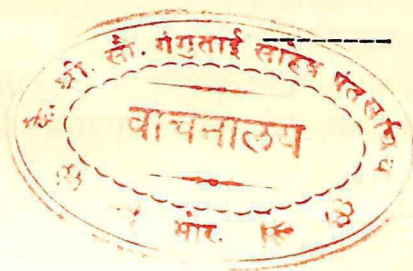 श्री. सौ. गंगुताई साहेब पंतसचिव
वाचनालय
भोर.